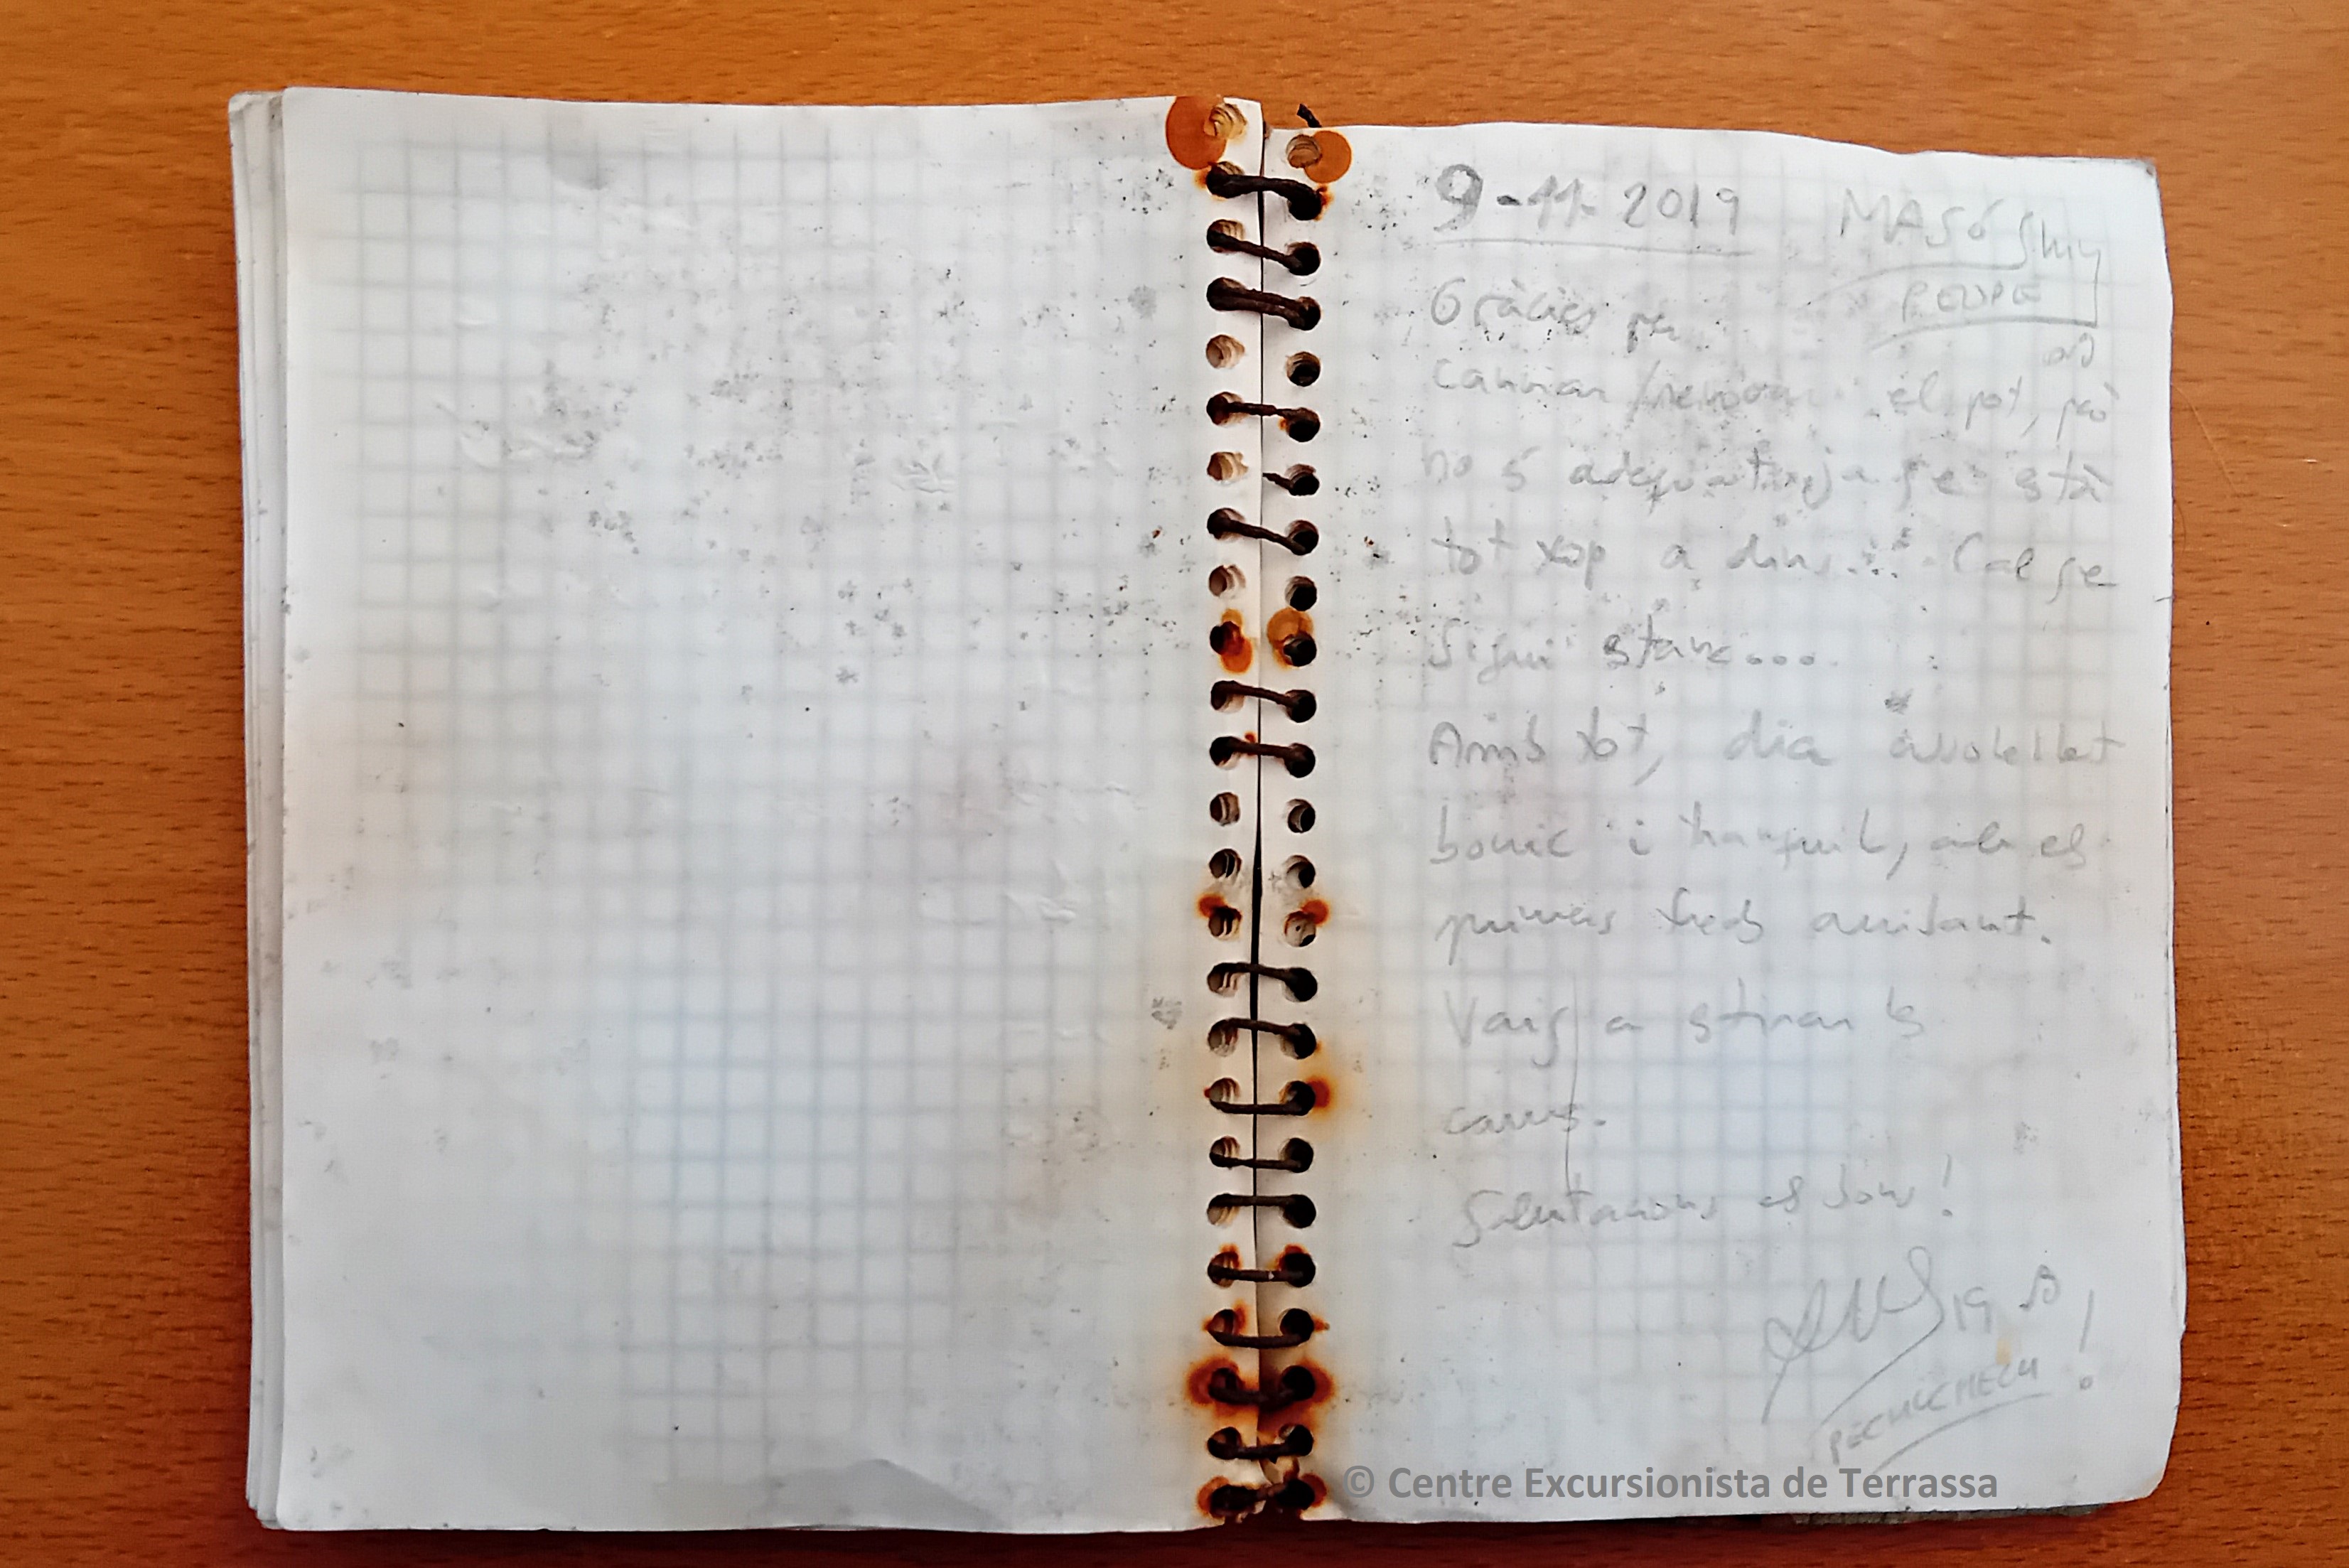 9-11-2019 MASÓ
PEOPLE
Gràcies per
canviar/renovar el pot, però
no és adequat ja qe està
tot xop a dins... Cal qe
sigui stanc...
Amb tot, dia assolellat
bonic i tranquil, amb els
primers freds arribant.
Vaig a stirar ls
cames.
Salutacions as tons!
19
© Centre Excursionista de Terrassa